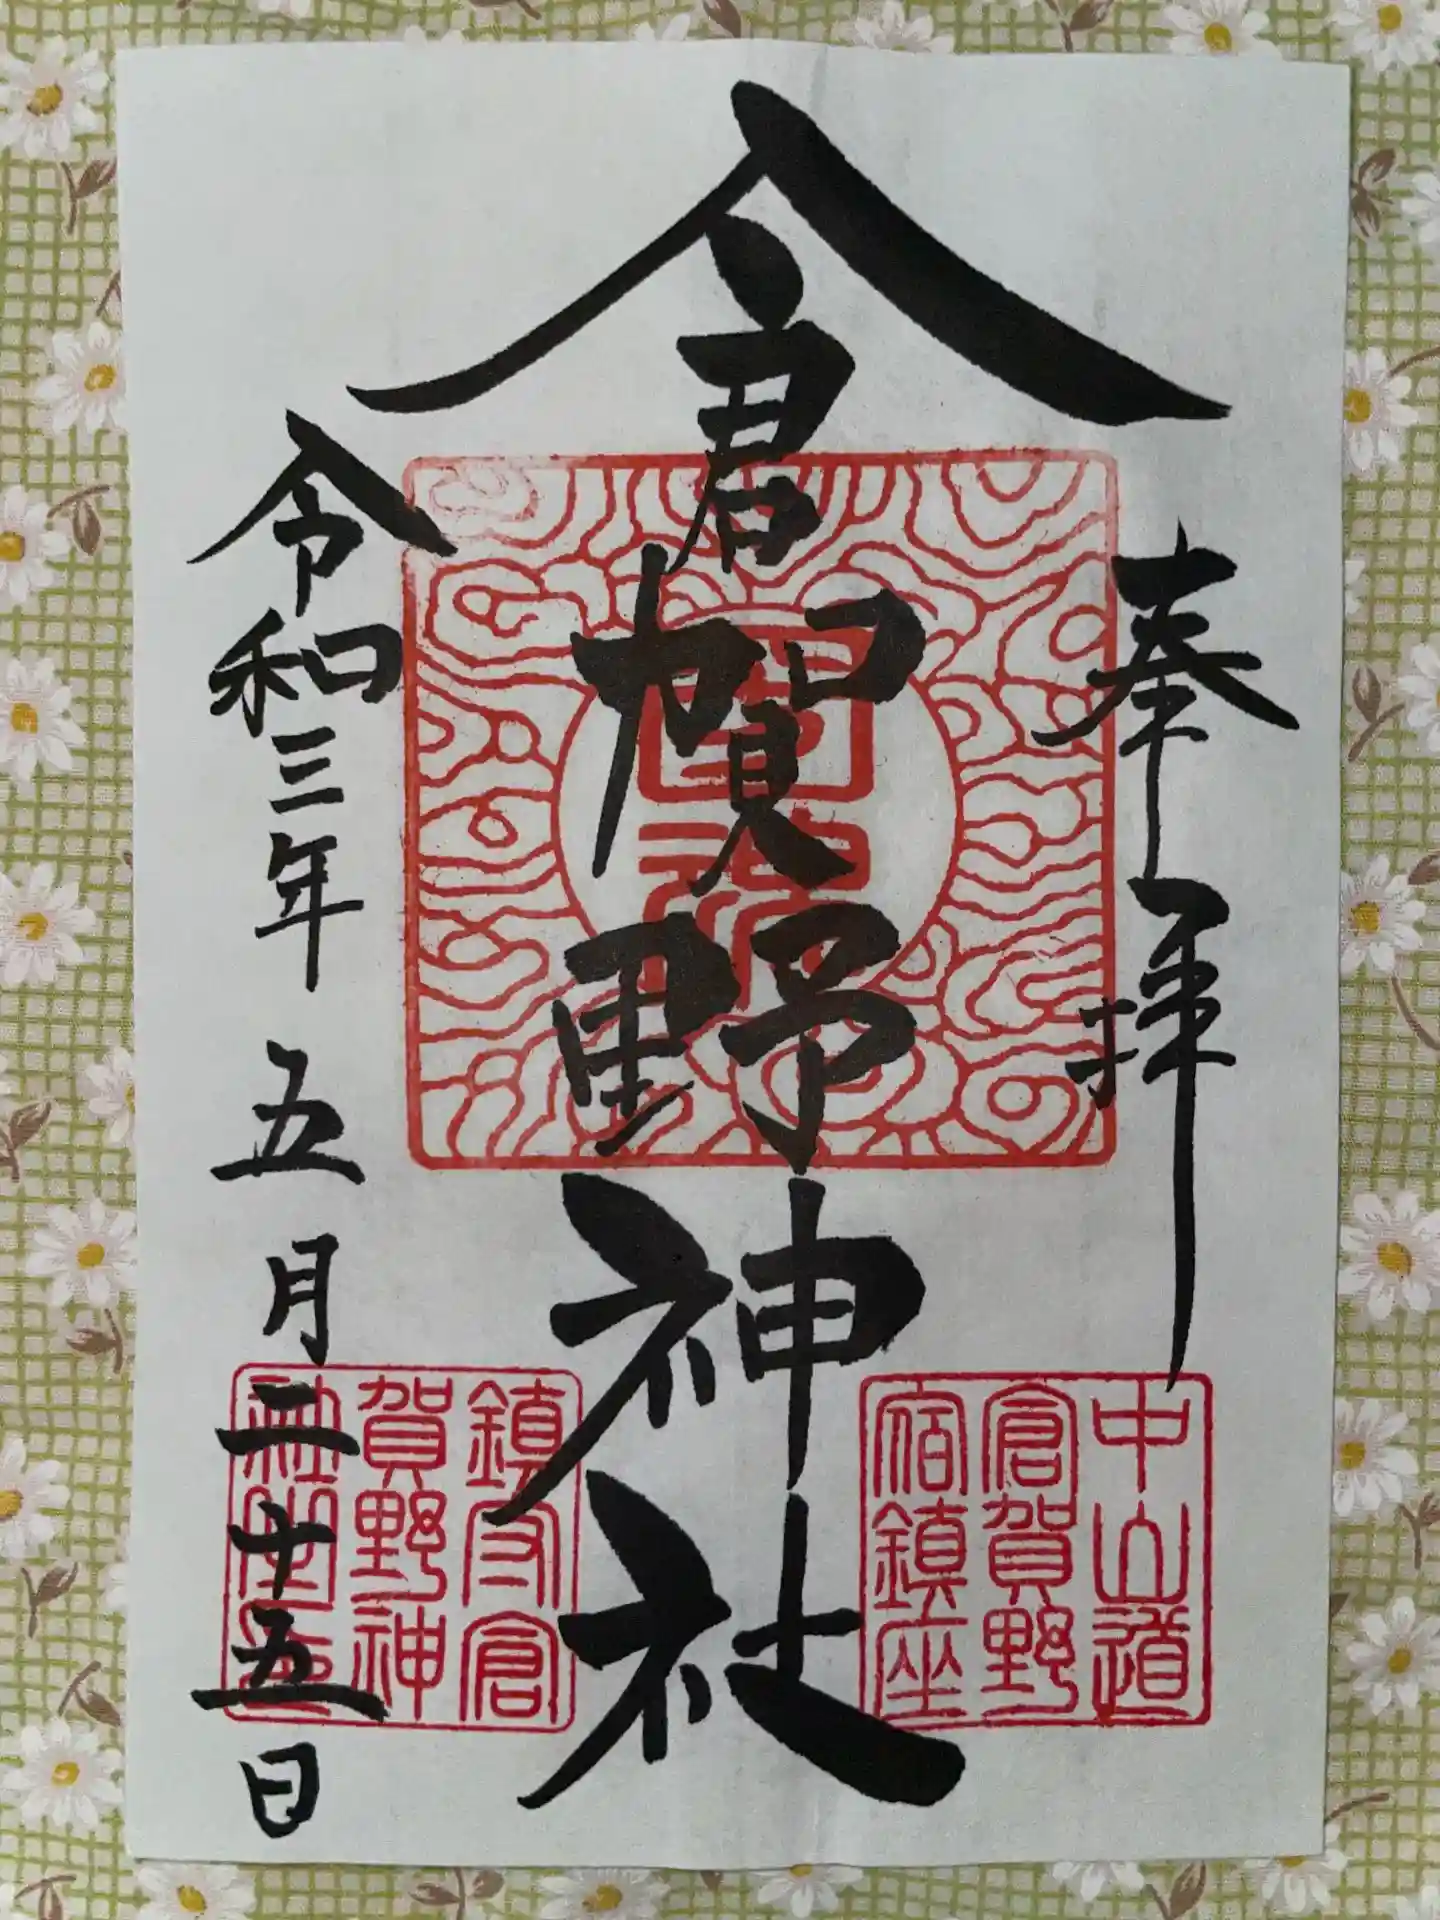 奉拝
中山道
倉賀野
宿鎮座
倉賀野神社
鎮守倉
賀野神
社
令和三年五月二十五日